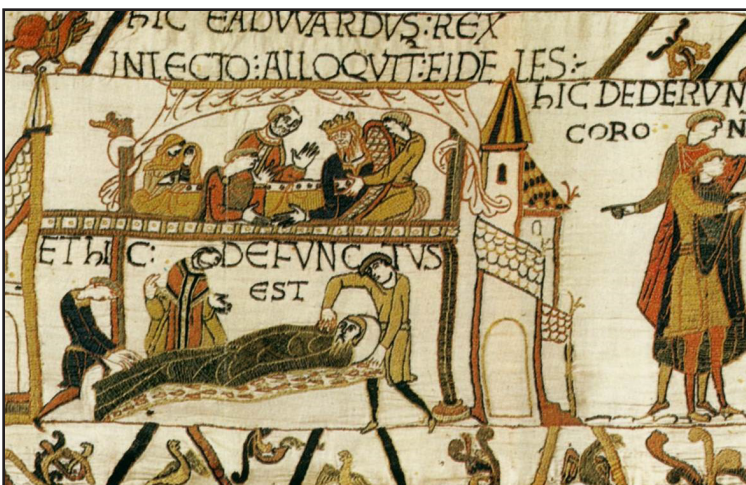 HIC EADVVARDVS:REX
INLECTO:ALLOQVIT:FIDELES:-
HIC DEDERVN
CORO N
ET hIC: DEFVNCTVS
EST